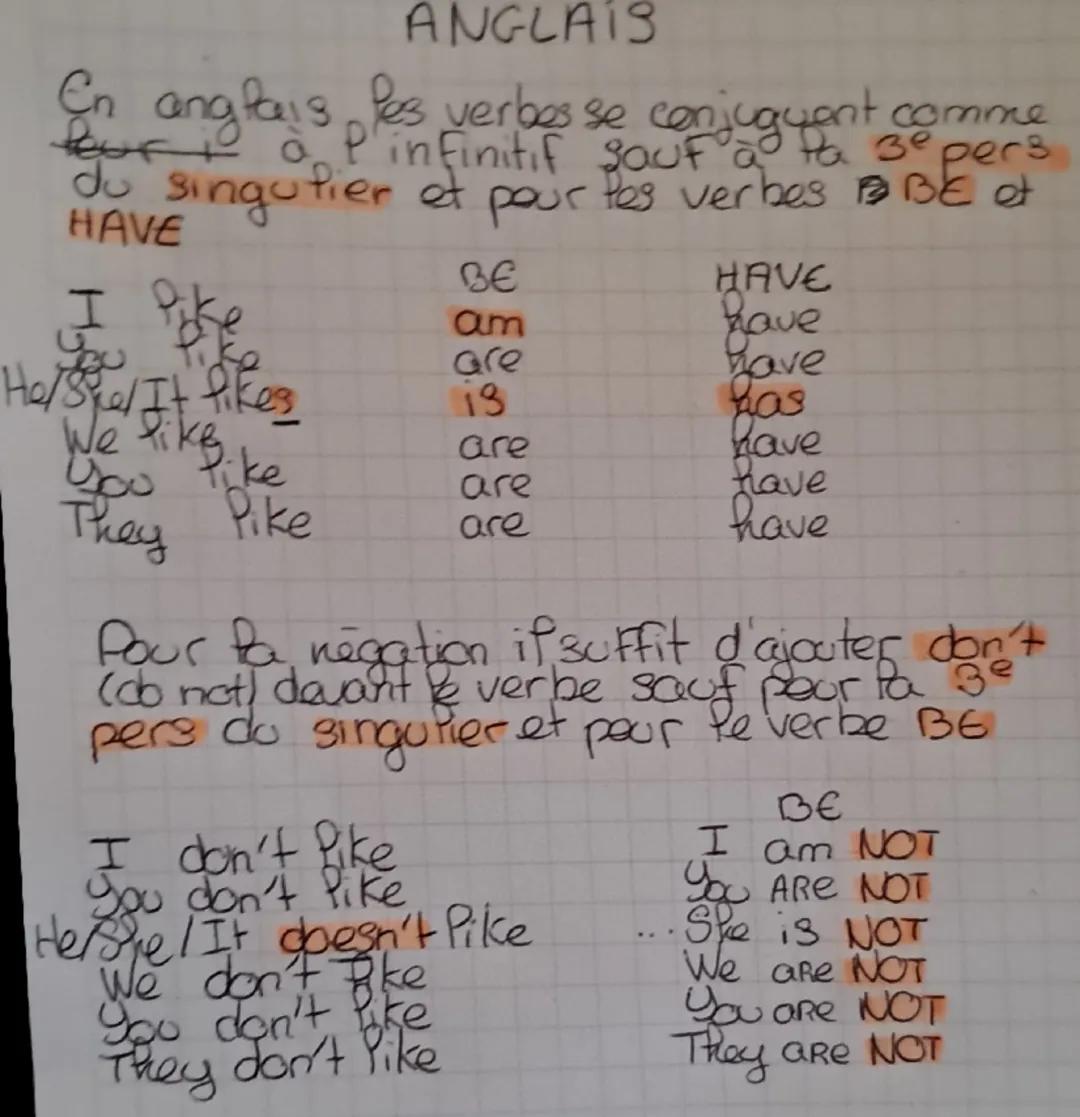 ANGLAIS
En anglais, les verbes se conjuguent comme
à l'infinitif sauf à la 3e pers
du singulier et pour les verbes BE et
HAVE
BE HAVE
I like am have
You like are have
He/She/It likes is has
We like are have
You like are have
They like are have
Pour la négation il suffit d'ajouter don't
(do not) devant le verbe sauf pour la 3e
pers du singulier et pour le verbe BE
BE
I don't like I am NOT
You don't like You ARE NOT
He/She/It doesn't like ... She is NOT
We don't like We aRe NOT
You don't like You are NOT
They don't like They aRe NOT